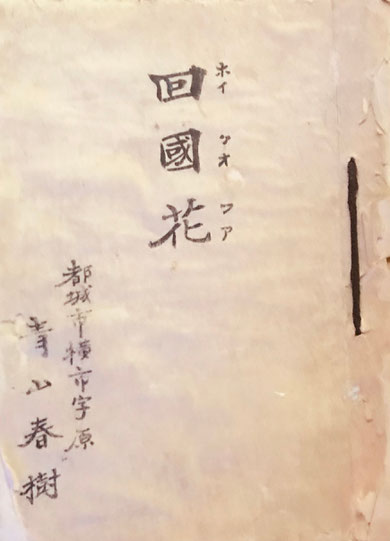 回國花
ホイ クオ ファ
都城市横市字原
青山春樹